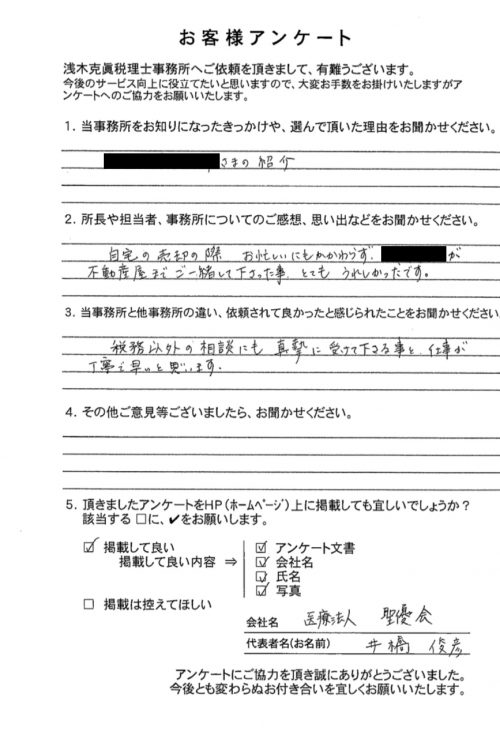 お客様アンケート
浅木克眞税理士事務所へご依頼を頂きまして、有難うございます。
今後のサービス向上に役立てたいと思いますので、大変お手数をお掛けいたしますがア
ンケートへのご協力をお願いいたします。
1. 当事務所をお知りになったきっかけや、選んで頂いた理由をお聞かせください。
さまの紹介
2. 所長や担当者、事務所についてのご感想、思い出などをお聞かせください。
自宅の売却の際 お忙しいにもかかわらず、 が
不動産屋までご一緒して下さった事、とても うれしかったです。
3. 当事務所と他事務所の違い、依頼されて良かったと感じられたことをお聞かせください
税務以外の相談にも 真摯に受けて下さる事と、仕事が
丁寧で早いと思います。
4. その他ご意見等ございましたら、お聞かせください。
5. 頂きましたアンケートをHP(ホームページ)上に掲載しても宜しいでしょうか?
該当する □に、✔をお願いします。
☑ 掲載して良い
掲載して良い内容 ⇒
☑ アンケート文書
☑ 会社名
☑ 氏名
☑ 写真
□ 掲載は控えてほしい
会社名 医療法人 聖優会
代表者名(お名前) 井橋 俊彦
アンケートにご協力を頂き誠にありがとうございました。
今後とも変わらぬお付き合いを宜しくお願いいたします。